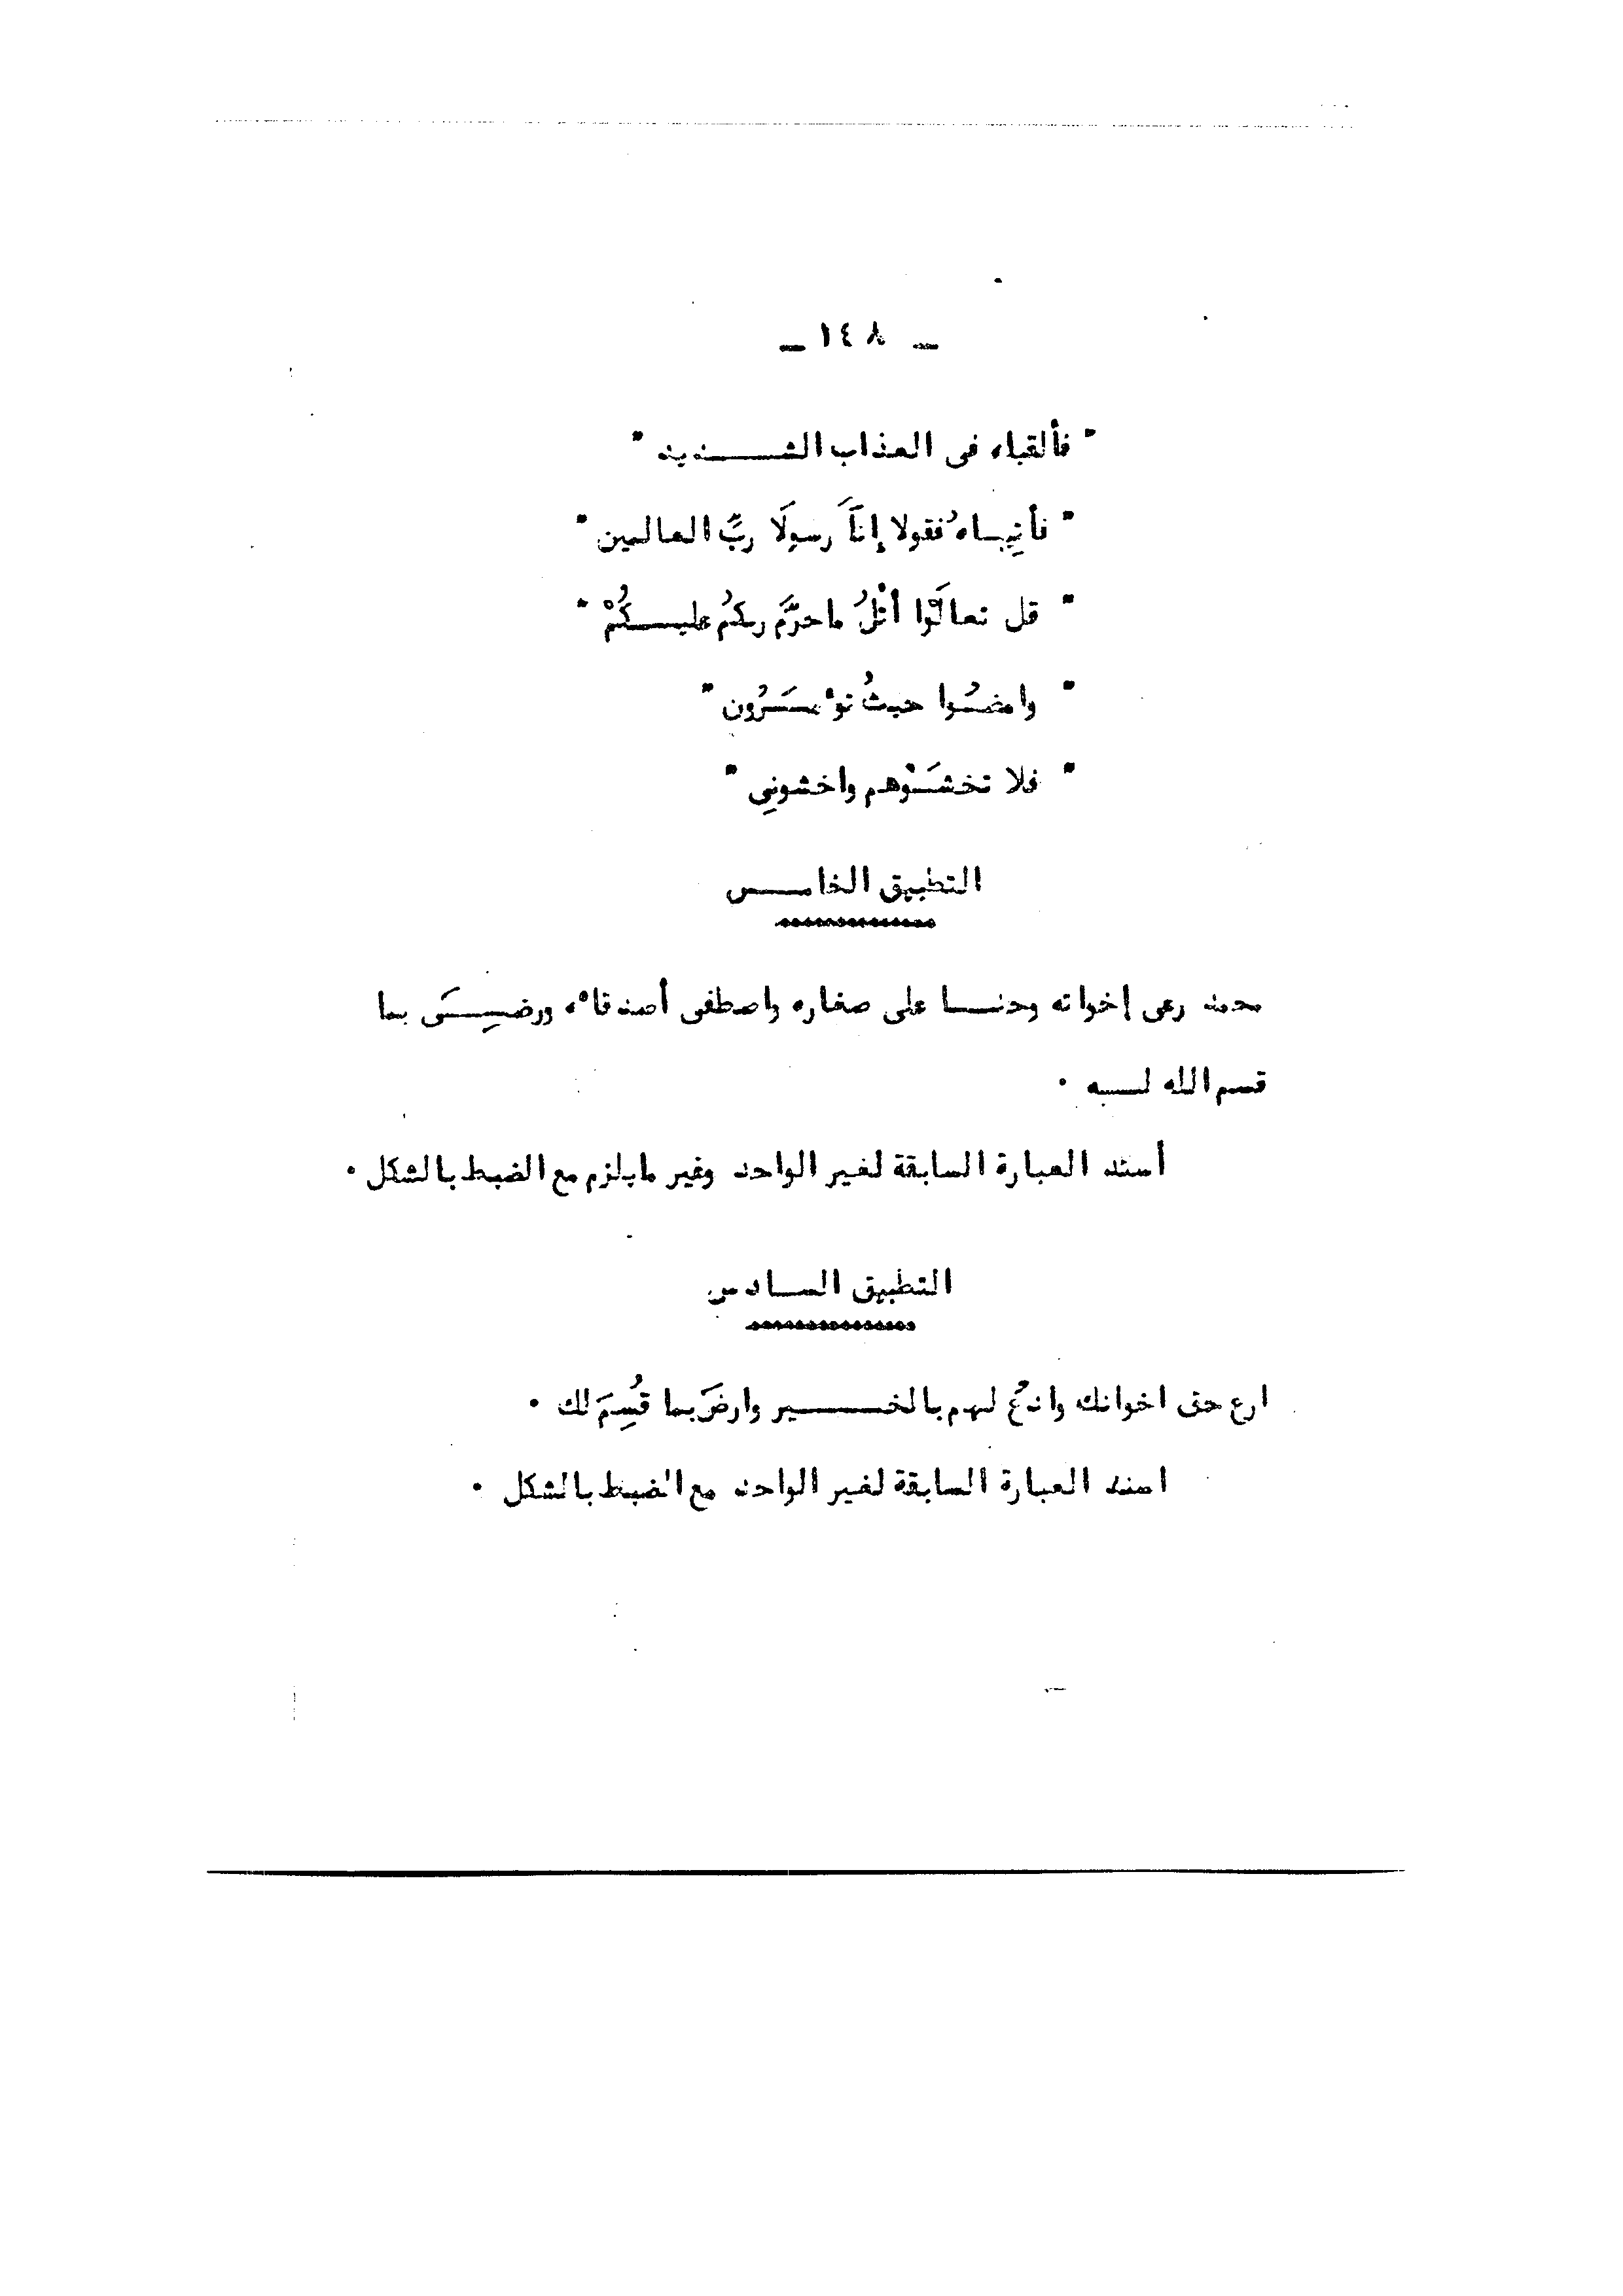 ـ ١٤٨ ـ
" فألقياه فى العذاب الشـــديد "
" فأتِيـاهُ فقولا إنَّا رسولَا ربِّ العالمين "
" قل تعالَوْا أتْلُ ماحرَّمَ ربكمُ عليــكُمْ "
" وامضُــوا حيثُ تؤْمــَرُون "
" فلا تخشَــوْهم واخشونِى "
التطبيق الخامــس
محمد رعى إخوانه وحنــا على صغاره واصطفى أصدقاءه ورضِــىَ بما
قسم الله لــه ٠
أسند العبارة السابقة لغير الواحد وغير مايلزم مع الضبط بالشكل ٠
التطبيق الســادس
ارع حق اخوانك وادْعُ لهم بالخــــير وارضَ بما قُسِمَ لك ٠
اسند العبارة السابقة لغير الواحد مع الضبط بالشكل ٠